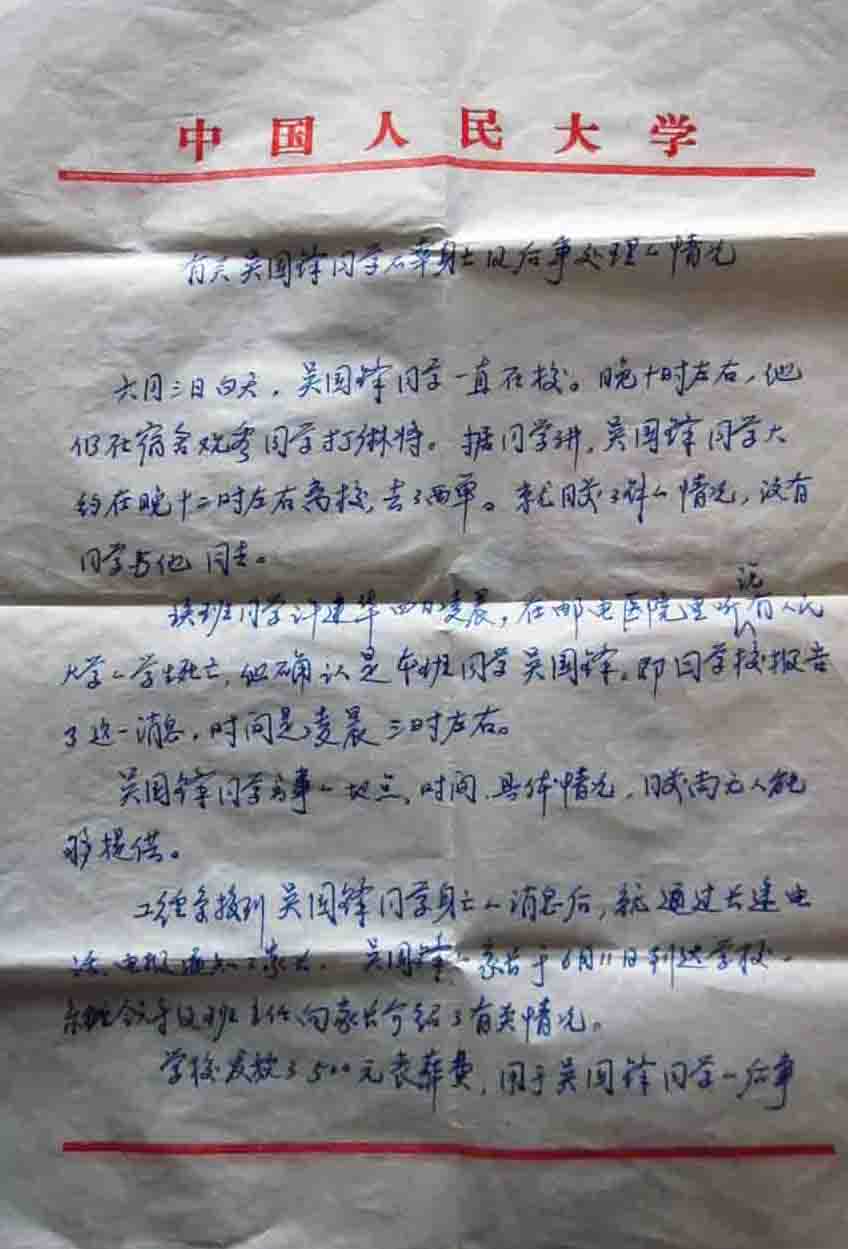 中国人民大学
有关吴国锋同学不幸身亡及后事处理的情况
六月三日白天，吴国锋同学一直在校。晚十时左右，他
仍在宿舍观看同学打麻将。据同学讲，吴国锋同学大
约在晚十二时左右离校，去了西单。就目前了解的情况，没有
同学与他同去。
该班同学许建华四日凌晨，在邮电医院里听说有人民
大学的学生死亡，他确认是本班同学吴国锋。即向学校报告
了这一消息，时间是凌晨三时左右。
吴国锋同学出事的地点、时间、具体情况，目前尚无人能
够提供。
工经系接到吴国锋同学身亡的消息后，就通过长途电
话、电报通知了家长。吴国锋的家长于6月11日到达学校，
系领导及班主任向家长介绍了有关情况。
学校发放了500元丧葬费，用于吴国锋同学的后事